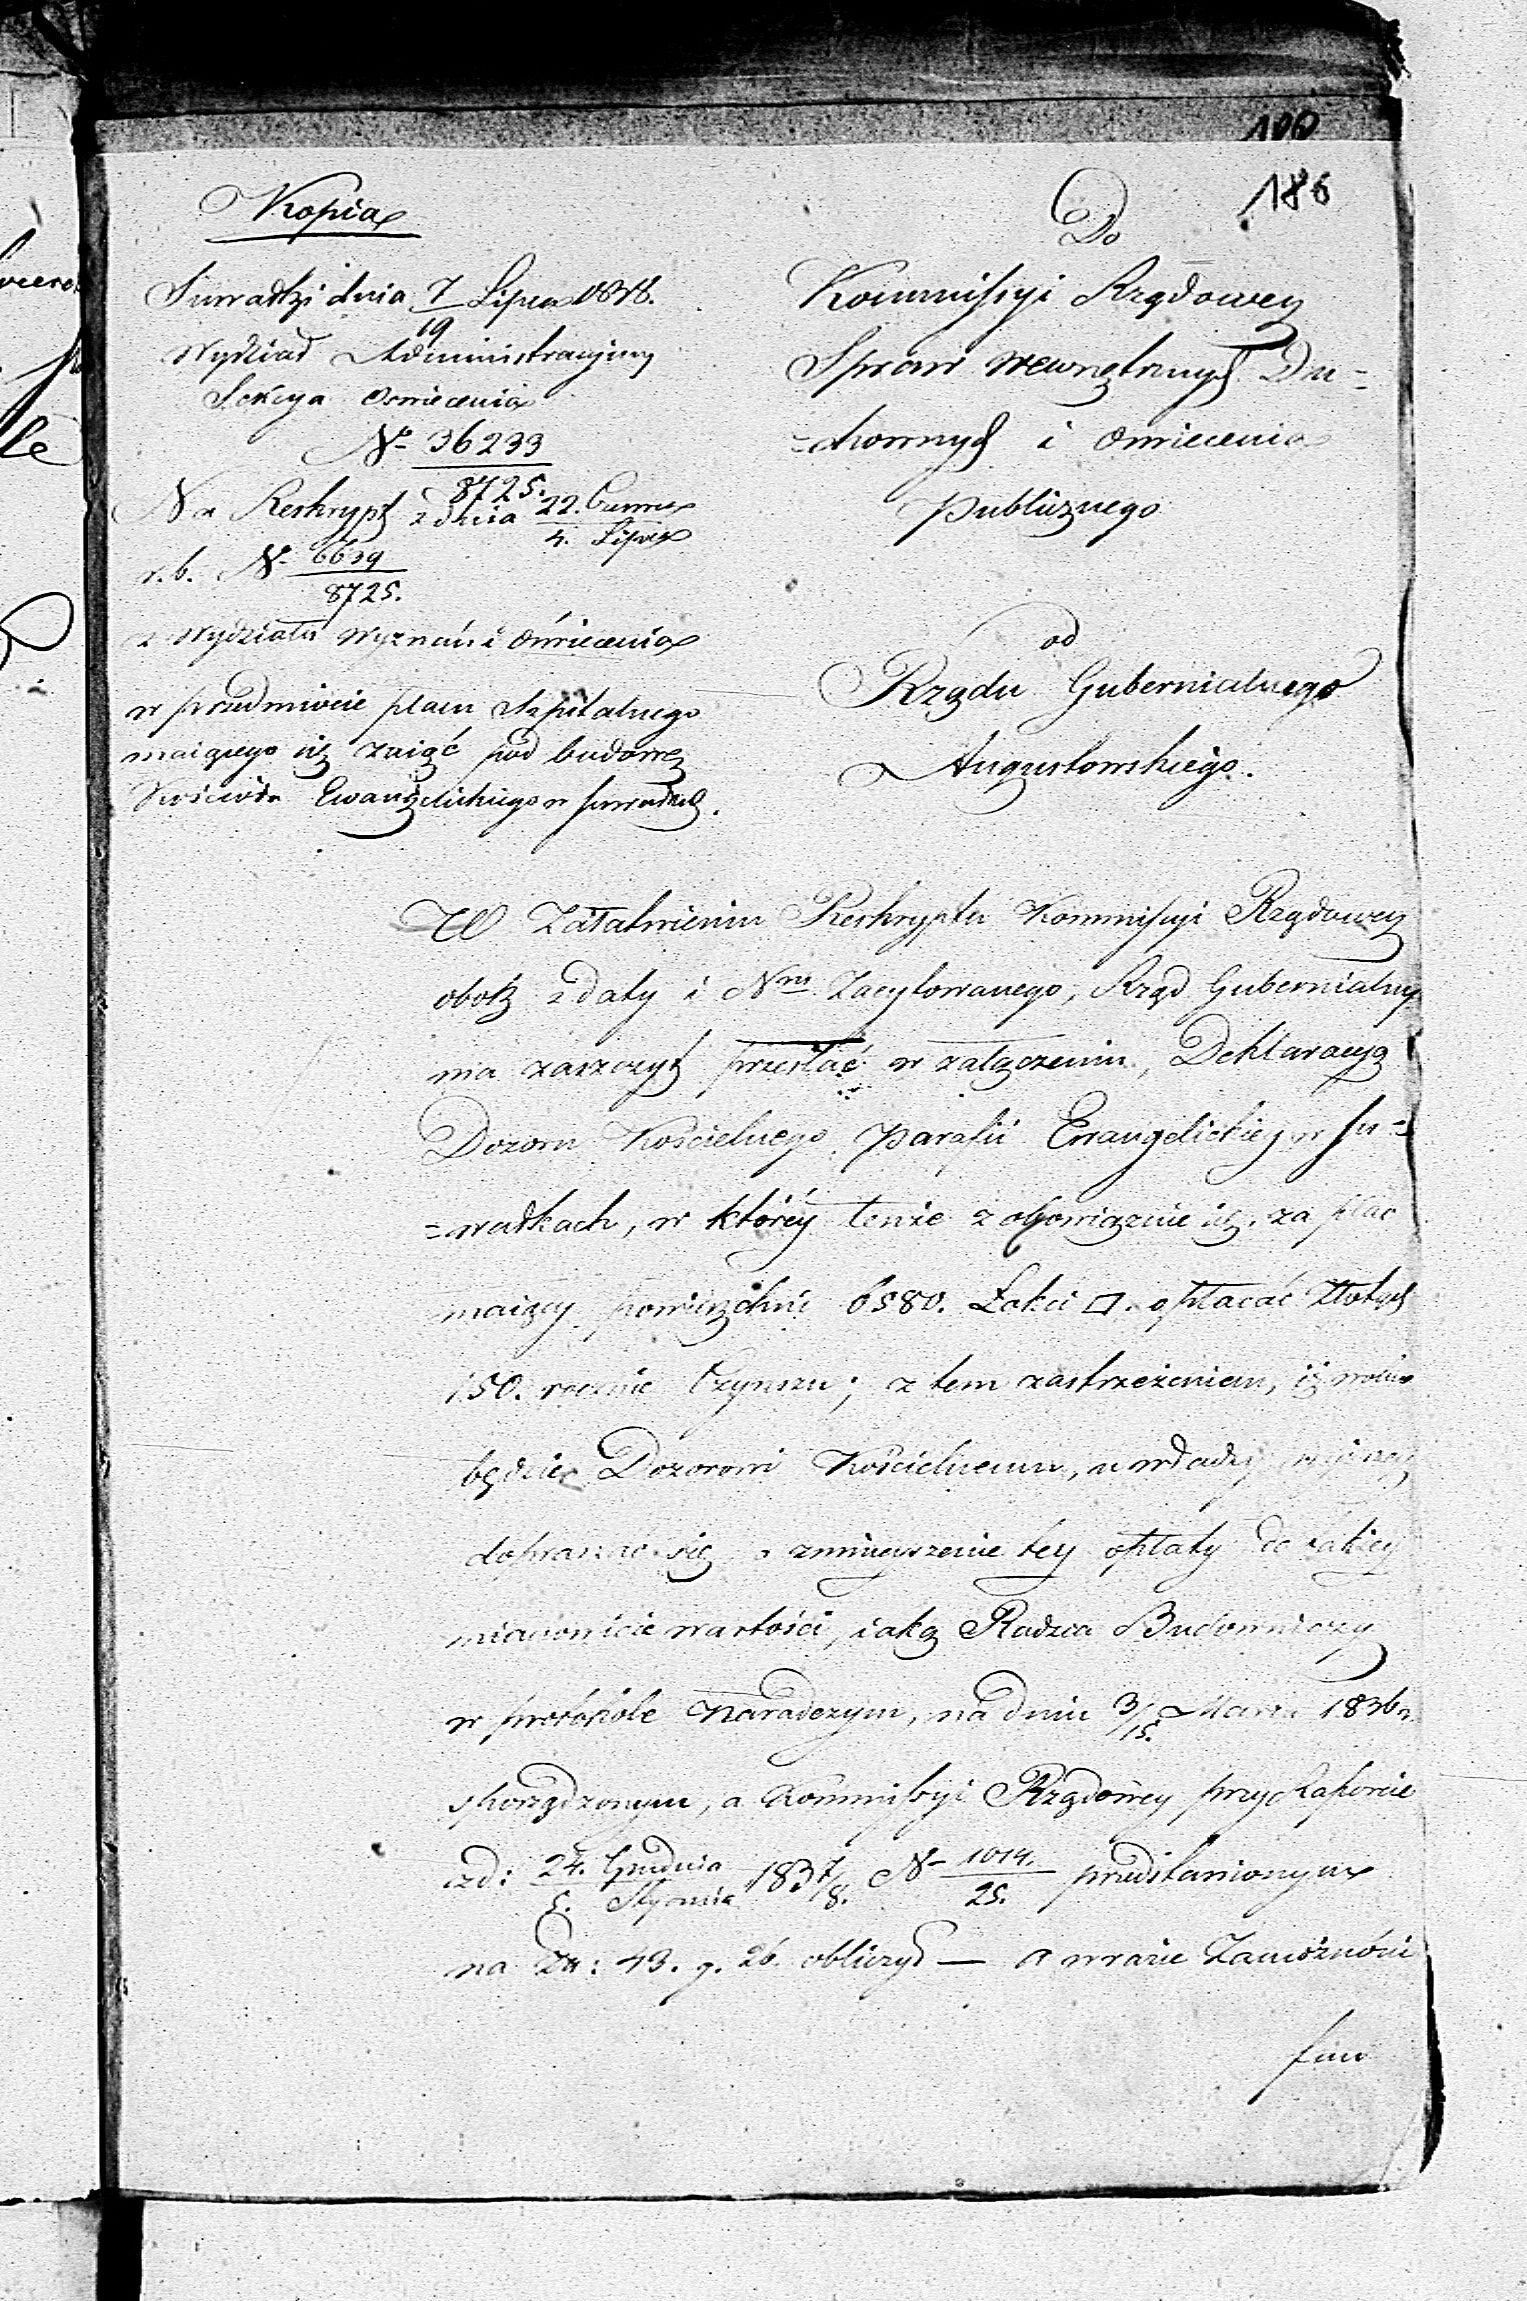 100
186
Kopia
Suwałki dnia 7/19 Lipca 1838.
Wydział Administracyjny
Sekcya Oswiecenia
No 36233/8725.
Na Reskrypt z dnia 22. Czerwca/4. Lipca
r. b. No 6639/8725.
z Wydziału Wyznań i Oświecenia
w przedmiocie placu Szpitalnego
maiącego się zaiąć pod budowę
Kościoła Ewangelickiego w Suwałkach.
Do
Kommissyi Rządowey
Spraw Wewnętrznych Du=
=chownych i Oswiecenia
Publicznego
od
Rządu Gubernialnego
Augustowskiego.
W Załatwieniu Reskryptu Kommissyi Rządowey
obok z daty i Nru Zacytowanego, Rząd Gubernialny
ma zaszczyt przesłać w załączeniu, Deklaracyą
Dozoru Kościelnego Parafii Ewangelickiej w Su=
=wałkach, w którey tenże zobowiązuie się, za plac
maiący powierzchni 6580. Łokci □. opłacać Złotych
150. rocznie Czynszu; z tem zastrzeżeniem, iż wolno
będzie Dozorowi Kościelnemu, u władzy wyższey
dopraszać się o zmnieyszenie tey opłaty do takiey
mianowicie wartości, iaką Radzca Budowniczy
w protokole Naradczym, na dniu 3/15. Marca 1836 r.
sporządzonym, a Kommissyi Rządowey przy Raporcie
z d: 24. Grudnia/5. Stycznia 1837/8. No 1014./25. przedstawionym
na Zł: 43. g. 26. obliczył — a w razie Zamożności